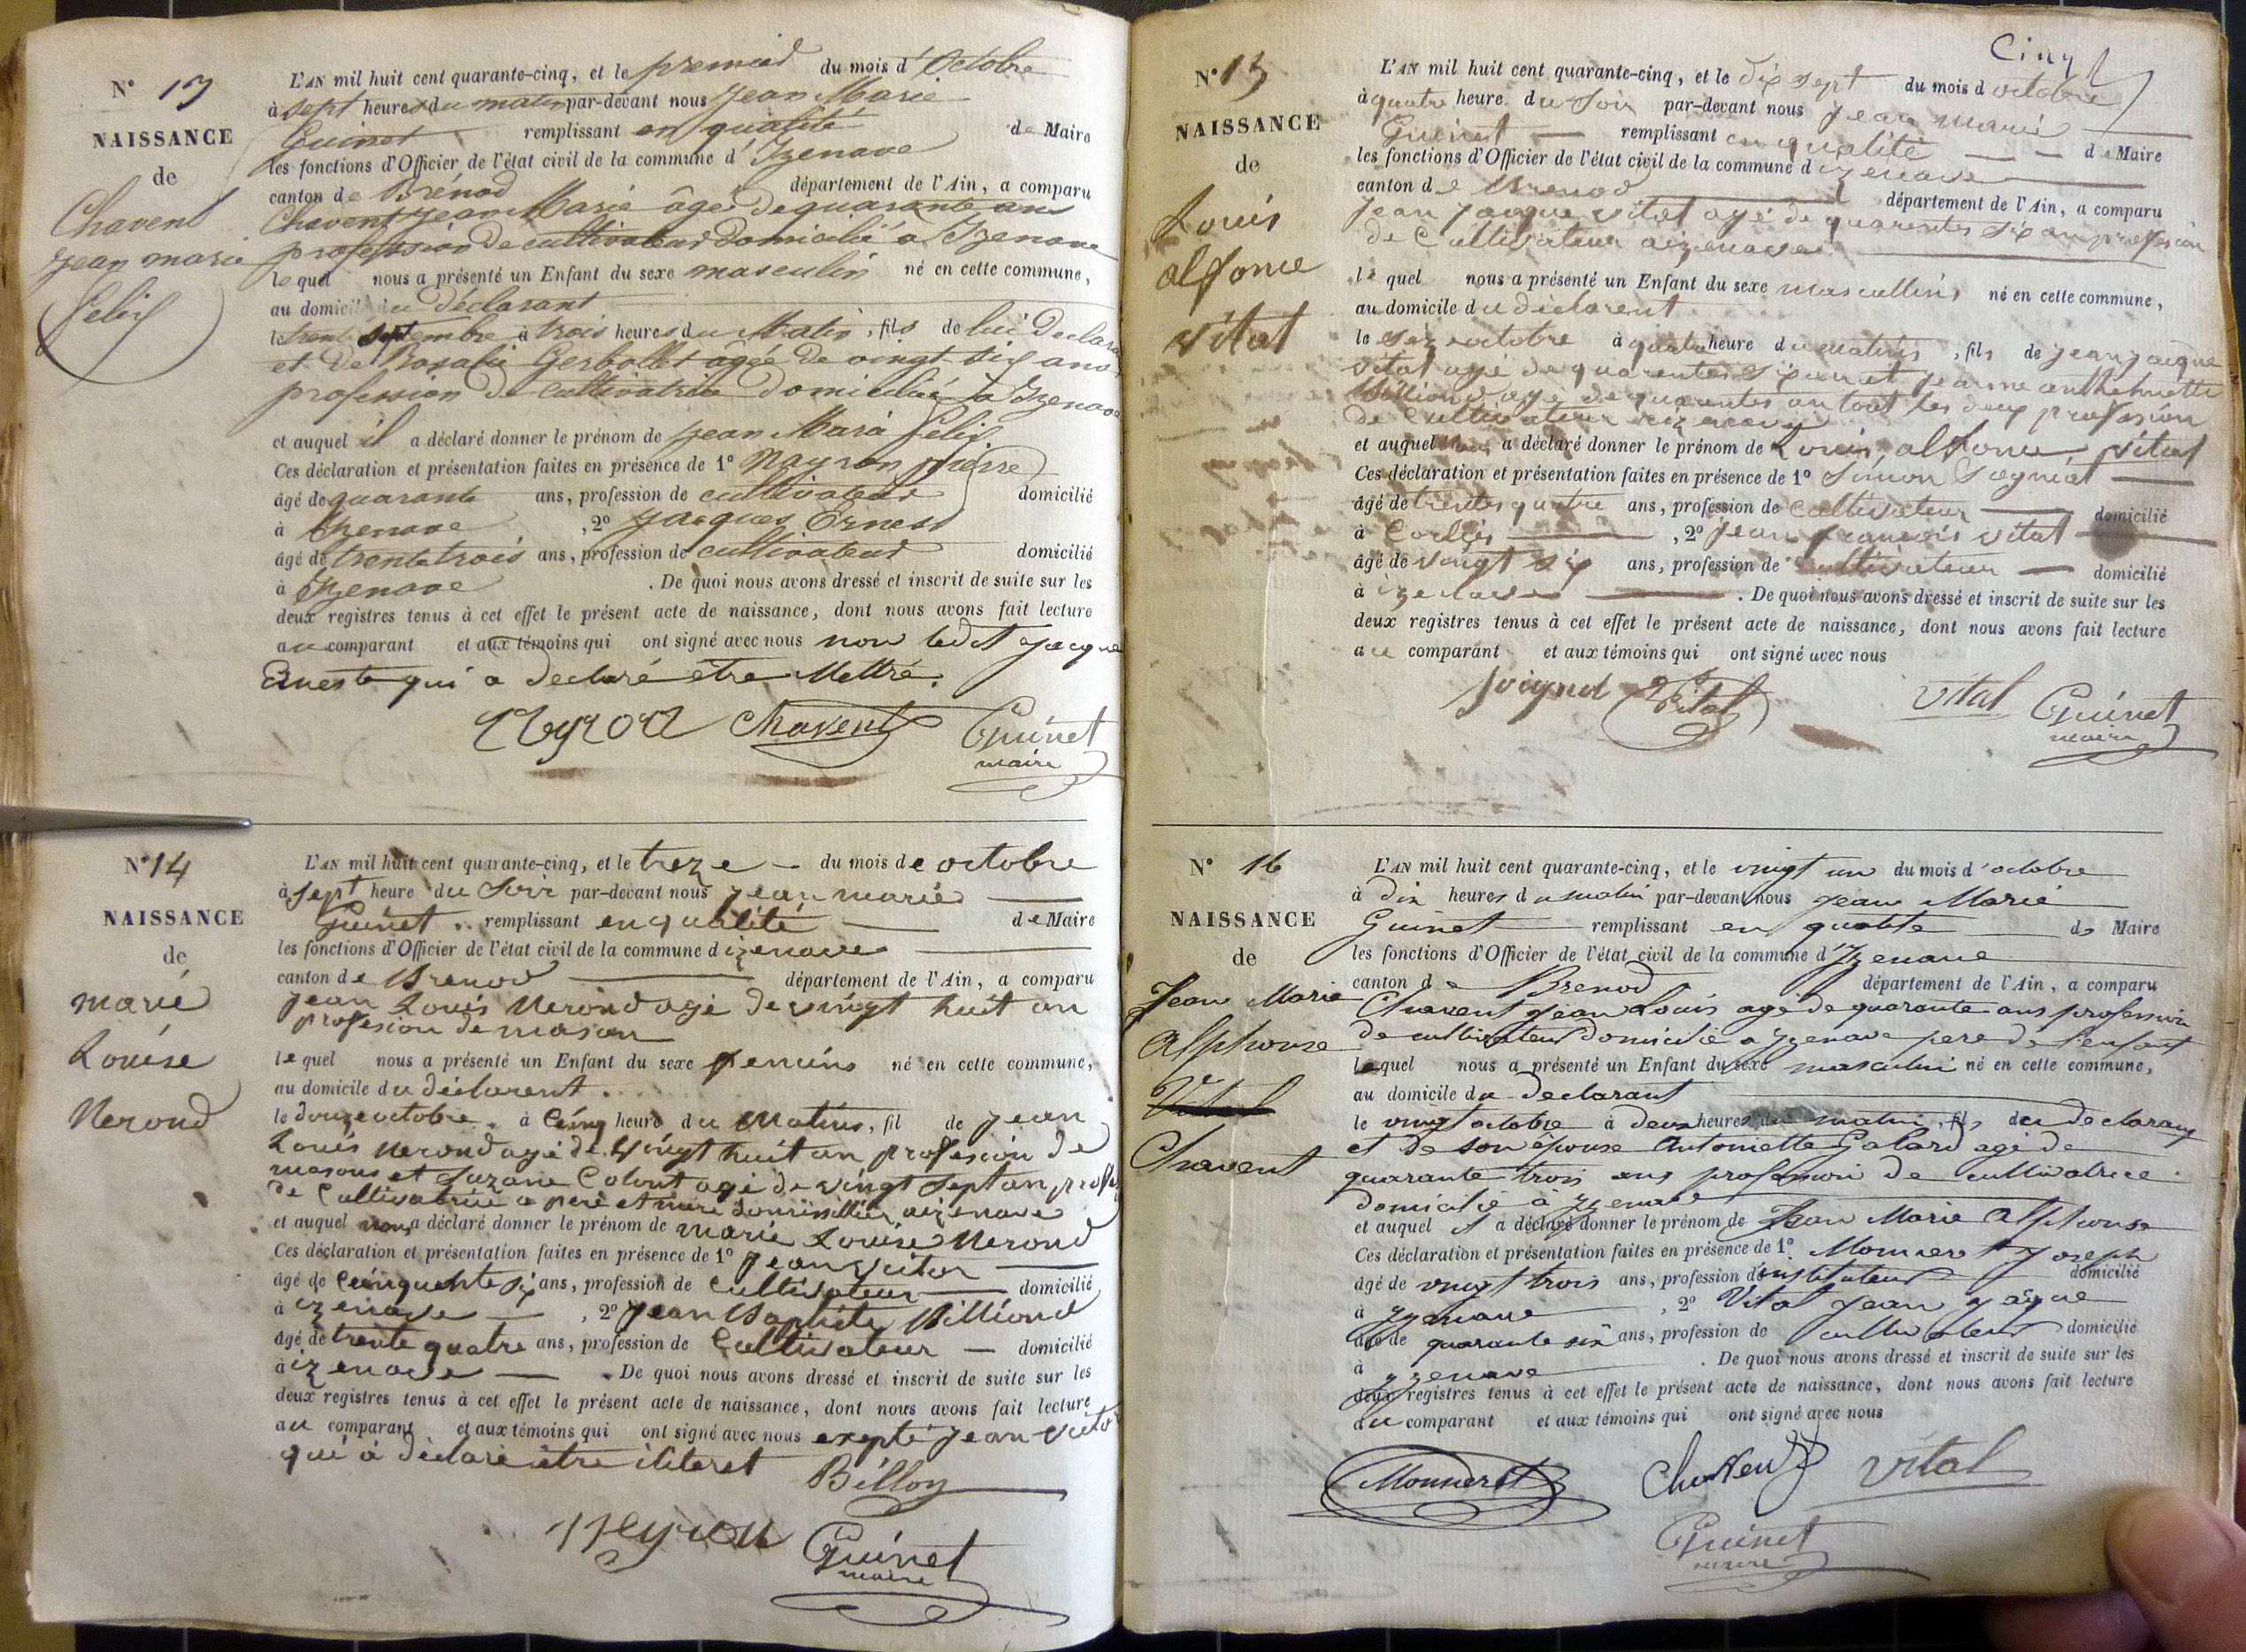 N° 13
NAISSANCE
de
Chavent
Jean marie
Felix
L'AN mil huit cent quarante-cinq, et le premier du mois d'Octobre
à sept heures du matin par-devant nous Jean Marie
Guinet remplissant en qualité de Maire
les fonctions d'Officier de l'état civil de la commune d'Izenave
canton de Brénod département de l'Ain, a comparu
Chavent Jean Marie âgé de quarante ans
profession de cultivateur domicilié à Izenave
lequel nous a présenté un Enfant du sexe masculin né en cette commune,
au domicile du déclarant
le trente septembre à trois heures du Matin, fils de lui Déclara
et De Rosalie Gerbollet agée De vingt six ans
profession De cultivatrice domiciliée à Izenave
et auquel il a déclaré donner le prénom de Jean Marie Felix.
Ces déclaration et présentation faites en présence de 1° Nayron pierre
âgé de quarante ans, profession de cultivateur domicilié
à Izenave, 2° Jacques Ernest
âgé de trente trois ans, profession de cultivateur domicilié
à Izenave. De quoi nous avons dressé et inscrit de suite sur les
deux registres tenus à cet effet le présent acte de naissance, dont nous avons fait lecture
au comparant et aux témoins qui ont signé avec nous non ledit Jacque
Erneste qui a declaré etre illettré.
Chavent Guinet
maire
N° 14
NAISSANCE
de
marie
Louise
Nerond
L'AN mil huit cent quarante-cinq, et le treze du mois de octobre
à sept heure du Soir par-devant nous jean marie
Guinet remplissant en qualité de Maire
les fonctions d'Officier de l'état civil de la commune d izenave
canton de Brenod département de l'Ain, a comparu
jean Louis Nerond agé de vingt huit an
profesion de mason
lequel nous a présenté un Enfant du sexe femins né en cette commune,
au domicile du déclarent
le douze octobre à Cinq heure du Matins, fil de jean
Louis Nerond agé de vingt huit an profesion de
masons et Suzane Colont agé de vingt sept an profes
de Cultivatrice a pere et mere aizenave
et auquel nous a déclaré donner le prénom de marie Louise Nerond
Ces déclaration et présentation faites en présence de 1° jean
âgé de Cinquente six ans, profession de Cultivateur domicilié
à izenave, 2° jean Baptiste Billiond
âgé de trente quatre ans, profession de Cultivateur domicilié
à izenave. De quoi nous avons dressé et inscrit de suite sur les
deux registres tenus à cet effet le présent acte de naissance, dont nous avons fait lecture
au comparant et aux témoins qui ont signé avec nous exepté jean
qui à déclaré être iliteret Billon
Guinet
maire
Cinq
N° 15
NAISSANCE
de
Louis
alfonce
vital
L'AN mil huit cent quarante-cinq, et le dix sept du mois d octobre
à quatre heure du Soir par-devant nous jean marie
Guinet remplissant en qualité de Maire
les fonctions d'Officier de l'état civil de la commune d izenave
canton de Brenod département de l'Ain, a comparu
jean jacque vital agé de quarentes six an profesion
de Cultivateur aizenave
lequel nous a présenté un Enfant du sexe mascullins né en cette commune,
au domicile du déclarent
le octobre à quatre heure du matins, fils de jean jacque
vital agé de quarentes six an et jeanne anthelmette
Billiond agé de quarentes an tout les deux profesion
de Cultivateur aizenave
et auquel a déclaré donner le prénom de Louis alfonce vital
Ces déclaration et présentation faites en présence de 1° Simon
âgé de trentes quatre ans, profession de Cultivateur domicilié
à, 2° jean francois vital
âgé de vingt six ans, profession de Cultivateur domicilié
à izenave. De quoi nous avons dressé et inscrit de suite sur les
deux registres tenus à cet effet le présent acte de naissance, dont nous avons fait lecture
au comparant et aux témoins qui ont signé avec nous
Vital vital Guinet
maire
N° 16
NAISSANCE
de
Jean Marie
Alphonse
Chavent
L'AN mil huit cent quarante-cinq, et le vingt un du mois d'octobre
à dix heures du matin par-devant nous Jean Marie
Guinet remplissant en qualité de Maire
les fonctions d'Officier de l'état civil de la commune d'Izenave
canton de Brenod département de l'Ain, a comparu
Chavent Jean Louis agé de quarante ans profession
de cultivateur domicilié a Izenave pere de l'enfant
lequel nous a présenté un Enfant du sexe masculin né en cette commune,
au domicile du declarant
le vingt octobre à deux heures du matin, fils du declarant
et de son épouse Antoinette Galard agé de
quarante trois ans profession de cultivatrice
domicilié à Izenave
et auquel il a déclaré donner le prénom de Jean Marie Alphonse
Ces déclaration et présentation faites en présence de 1° Monneret Joseph
âgé de vingt trois ans, profession d'instituteur domicilié
à Izenave, 2° Vital Jean Jaque
âgé de quarante six ans, profession de cultivateur domicilié
à Izenave. De quoi nous avons dressé et inscrit de suite sur les
deux registres tenus à cet effet le présent acte de naissance, dont nous avons fait lecture
au comparant et aux témoins qui ont signé avec nous
Monneret Chavent vital
Guinet
maire